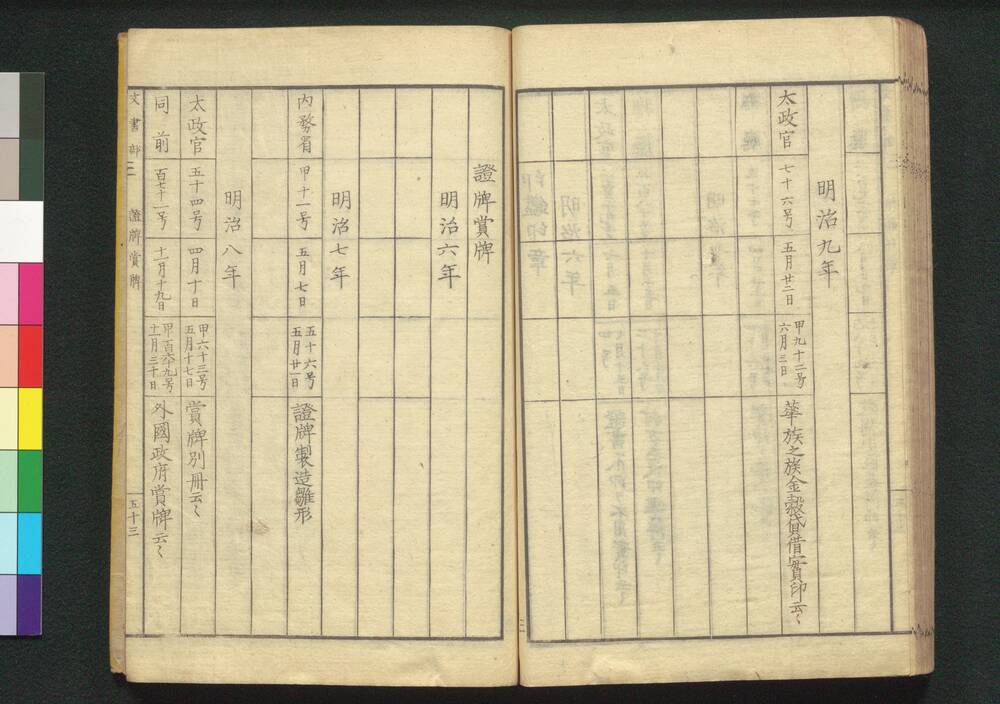 明治九年
太政官 七十六号 五月廿二日 甲九十二号 六月三日 華族之族金穀貸借實印云々
證牌賞牌
明治六年
明治七年
内務省 甲十一号 五月七日 五十六号 五月廿一日 證牌製造雛形
明治八年
太政官 五十四号 四月十日 甲六十三号 五月十七日 賞牌別冊云々
同前 百七十一号 十一月十九日 甲百六十九号 十一月三十日 外國政府賞牌云々
文書部三 證牌賞牌 五十三